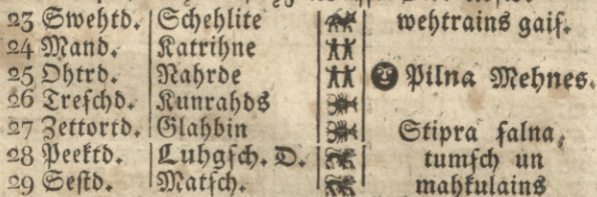 23 Swehtd. Schehlite wehtrains gais.
24 Mand. Katrihne
25 Ohtrd. Nahrde Pilna Mehnes.
26 Treschd. Kunrahds
27 Zettortd. Glahbin Stipra salna,
28 Peektd. Luhgsch. D. tumsch un
29 Sestd. Matsch. mahkulains